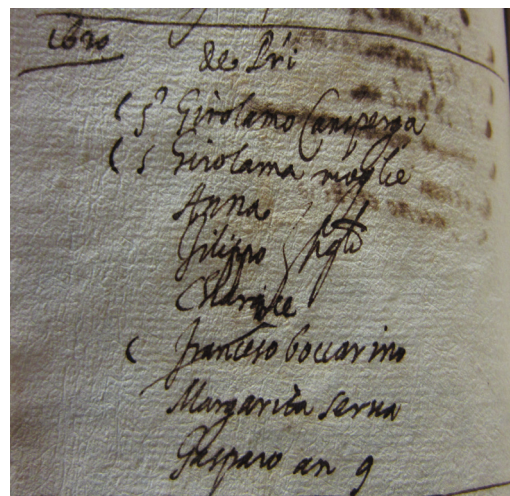 1620
de Pri
( s Girolamo Caniperga
( s Girolama moglie
Anna
Filippo figli
Clarice
( francesco boccarino
Margarita serua
Gasparo an 9